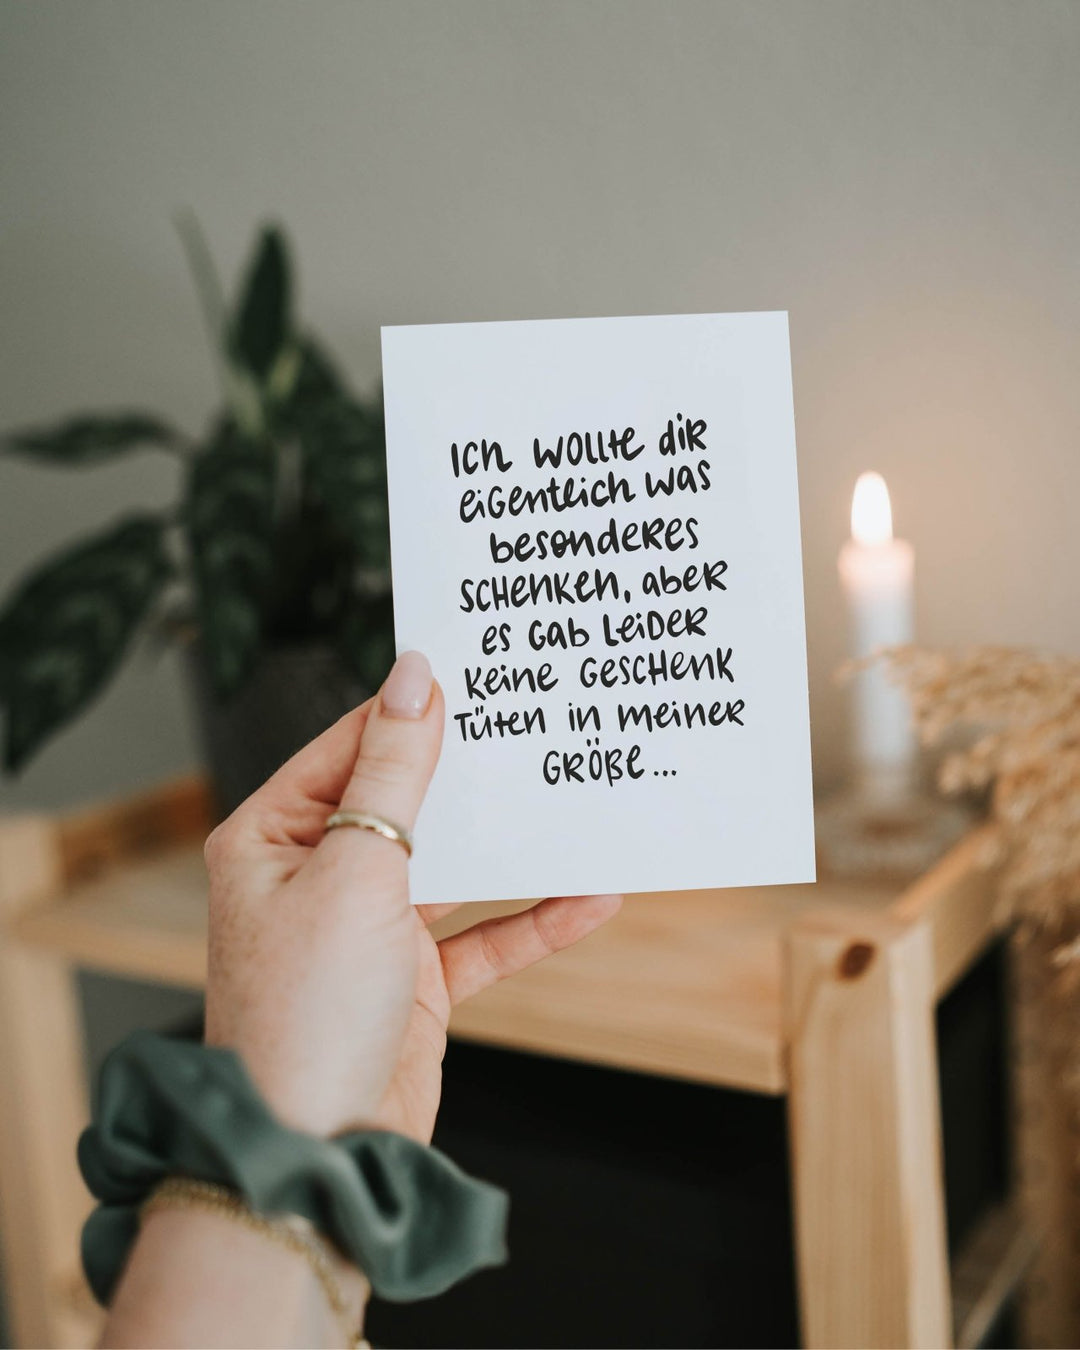 Ich wollte dir
eigentlich was
besonderes
schenken, aber
es gab leider
keine Geschenk
Tüten in meiner
Größe...